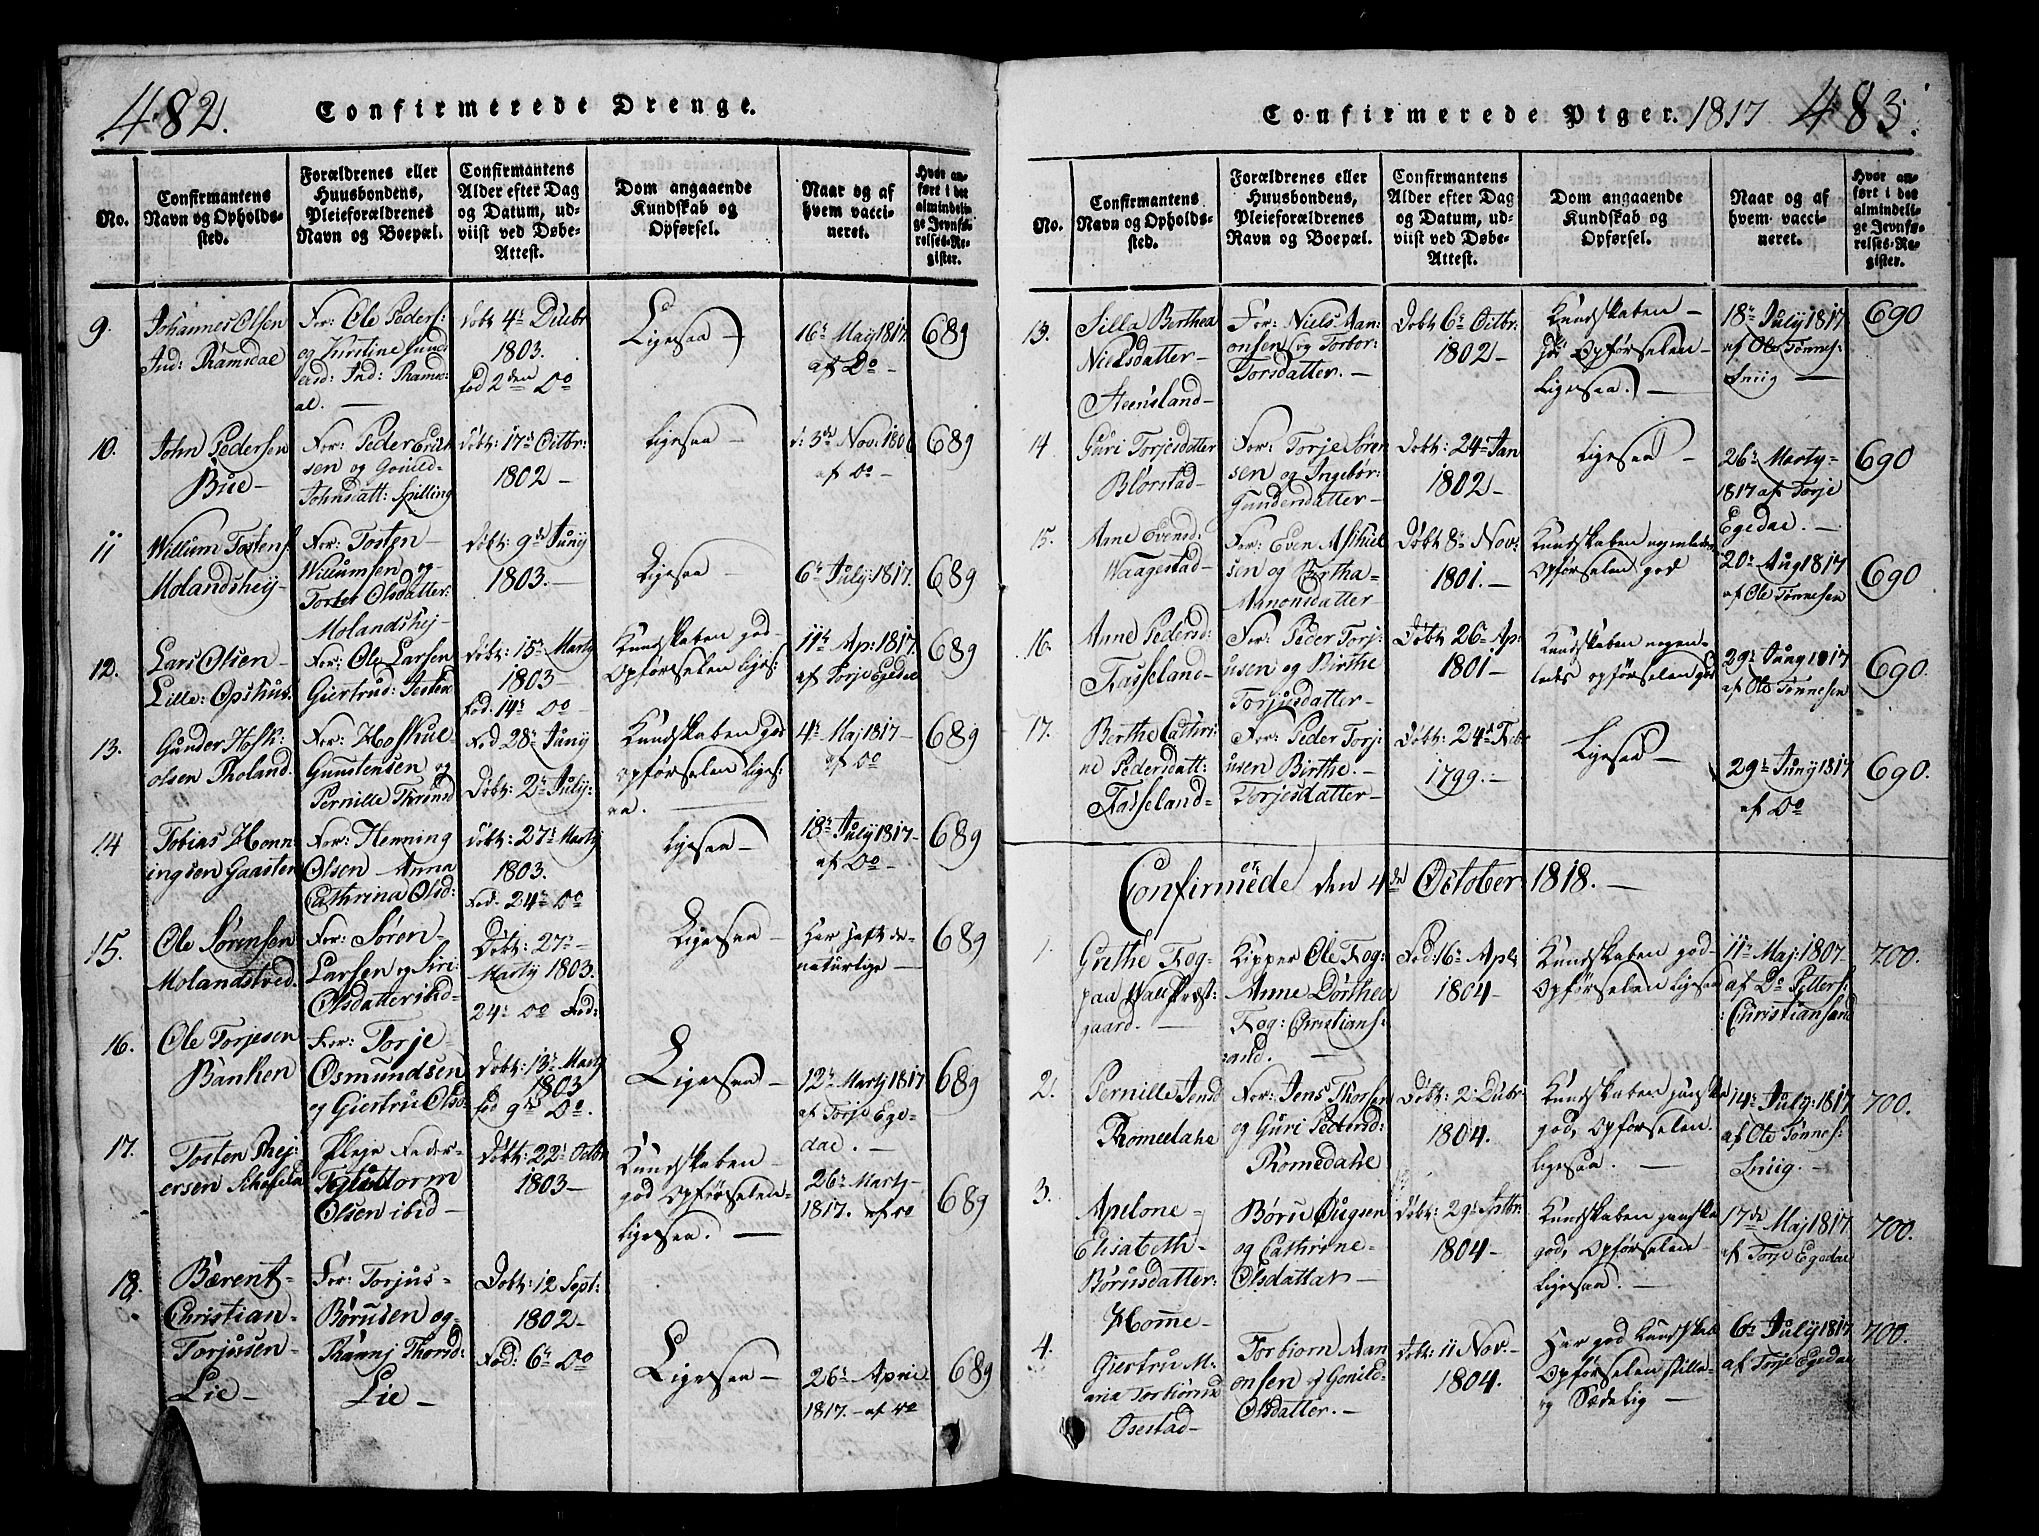 482.
Confirmerede Drenge.
No.
Confirmantens
Navn og Opholds-
sted.
Forældrenes eller
Huusbondens,
Pleieforældrenes
Navn og Boepæl.
Confirmantens
Alder efter Dag
og Datum, ud-
viist ved Døbe-
Attest.
Dom angaaende
Kundskab og
Opførsel.
Naar og af
hvem vacci-
neret.
Hvor an-
ført i det
almindeli-
ge Jevnfø-
relses-Re-
gister.
9.
Johannes Olsen
Ind: Ramsdal
For: Ole Peders:
og Kirstine
Ind: Rams:
al. —
Døbt 4de Decbr
1803.
fød 2den Do
Ligesaa —
16de Maj 1817.
af Do
689
10.
John Pedersen
Bue —
For: Peder Erich
sen og Gonild
Johnsdatt: Spilling
Døbt: 17de Octbr:
1802 —
Ligesaa —
d: 3de Nov: 180
af Do —
689
11
Willum Tostens:
Molandshej —
For: Tosten —
Willumsen og —
Olsdatter
Molandshej —
Døbt: 9de Juny
1803. —
Ligesaa —
6te July 1817.
689
12.
Lars Olsen —
Lille: Opthus
For: Ole Larsen
Giertrud Tosten
Døbt: 15de Marty
1803 —
Fød: 14de Do —
Kundskaben god —
Opførselen liges:
11te Ap: 1817.
af Torje Egedal
689
13.
Gunder Hofk:
olsen Røland.
For: Hofkul —
Gunstensen og
Pernille Thrond
Fød 28de Juny
Døbt: 2de July:
Kundskaben god
opførselen liges:
aa.
4de Maj 1817 —
af Do
689
14
Tobias Henn-
ingsen Gaasten
For: Henning
Olsen Anna
Cathrina Olsd:
Døbt: 27de Marty
1803.
Fød. 24de Do
Ligesaa —
18de July 1817 —
af Do:
689
15.
Ole Sørensen
Molandsved.
For: Søren —
Larsen og Siri
Olsdatter ibid —
Døbt: 27de —
Marty 1803.
24de Do Fød:
Ligesaa —
Har haft de —
naturlige —
689
16.
Ole Torjesen
Banken
For: Torje —
Osmundsen
og Giertru Olsd
Døbt: 13de Marty
1803
fød 9de Do.
Ligesaa —
12te Marty 1817
af Torje Ege-
dal. —
689
17.
Tosten Rej:
ersen
Pleje Fader —
Guttorm
Olsen ibid —
Døbt: 22de Octbr
1803 —
Kundskaben —
god Opførselen —
ligesaa. —
26de Marty —
1817. af Do
689
18.
Bærent —
Christian —
Torjussen —
Lie —
For: Torjus —
Børusen og —
Ranni Thorsd
Lie —
Døbt: 12 Sept:
1802 —
Fød: 6te Do
Ligesaa —
26de April
1817. — af Do
689
Confirmerede Piger. 1817
483.
No.
Confirmantens
Navn og Opholds-
sted.
Forældrenes eller
Huusbondens,
Pleieforældrenes
Navn og Boepæl.
Confirmantens
Alder efter Dag
og Datum, ud-
viist ved Døbe-
Attest.
Dom angaaende
Kundskab og
Opførsel.
Naar og af
hvem vacci-
neret.
Hvor an-
ført i det
almindeli-
ge Jevnfø-
relses-Re-
gister.
13.
Silla Berthea
Nielsdatter —
Steensland —
For: Niels Aan-
onsen og Torbor
Torsdatter. —
Døbt 6te Octbr:
1802 —
Kundskaben —
god Opførselen —
Ligesaa. —
18de July 1817
af Ole Tønnes:
690
14
Guri Torjesdatter
Blørstad —
For: Torje Søren
sen og Ingebor
Gundersdatter —
Døbt: 24de Jan
1802 —
Ligesaa —
26de Marty —
1817 af Torje
Egedal. —
690
15.
Anne Evensd:
Waagestad —
For: Even
sen og Bertha —
Aanonsdatter —
Døbt 8de Nov:
1801. —
Kundskaben nogenledes
Opførselen god
20de Aug 1817
af Ole Tønnesen
690
16.
Anne Pedersd:
Fasseland —
For: Peder Torj:
usen og Birthe
Torjusdatter —
Døbt 26de Ap:
1801 —
Kundskaben nogen-
ledes opførselen god
29de Juny 1817
af Ole Tønnesen
690.
17.
Berthe Cathri
ne Pedersdatt:
Fasseland —
For: Peder Torj:
usen Birthe. —
Torjesdatter —
Døbt: 24de Feb
1799. —
Ligesaa —
29de Juny 1817
af Do
690.
Confirmerede den 4de October 1818. —
1.
Grethe Fog —
paa Walle Præst:
gaard. —
Kipper Ole Fog:
Anne Dorthea
Fog: Christians:
sand. —
Fød: 16de Apl:
1804 —
Kundskaben god —
Opførselen ligesaa
11te Maj: 1807 —
af Dr Pitters:
: Christiansand
700.
2.
Pernille Jensd
Romedahe
For: Jens Thorsen
og Guri Pedersd:
Romedahe
Døbt: 2de Decbr
1804.
Kundskaben ganske
god, Opførselen
ligesaa. —
14de July: 1817
af Ole Tønnes:
700.
3.
Apelone —
Elisabeth —
Børusdatter:
Homme —
Børu Ougsen
og Cathrine —
Olsdatter —
Døbt: 29de Sptbr:
1804 —
Kundskaben ganske
god, Opførselen —
Ligesaa. —
17de Maj 1817
af Torje Egedal
700.
4.
Giertru M:
aria Torbiørnsd
Osestad —
Torbiørn Aan
onsen og Gonild
Olsdatter. —
Døbt: 11 Nov: —
1804.
Har god Kundskab
Opførselen stille —
og Sædelig —
6te July 1817
af Torje Egedal
700.